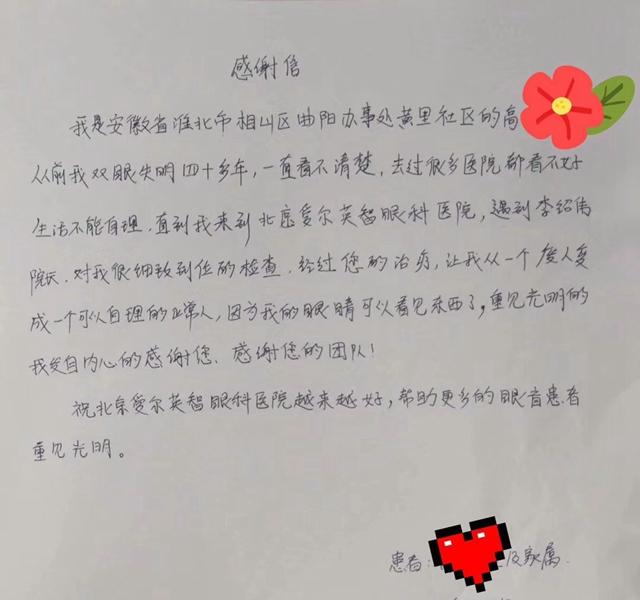 感谢信
我是安徽省淮北市相山区曲阳办事处黄里社区的高
从前我双眼失明四十多年，一直看不清楚，去过很多医院都看不好
生活不能自理．直到我来到北京爱尔英智眼科医院，遇到李绍伟
院长．对我很细致到位的检查．经过您的治疗，让我从一个废人变
成一个可以自理的正常人，因为我的眼睛可以看见东西了，重见光明的
我发自内心的感谢您、感谢您的团队！
祝北京爱尔英智眼科医院越来越好，帮助更多的眼盲患者
重见光明。
患者：及家属．